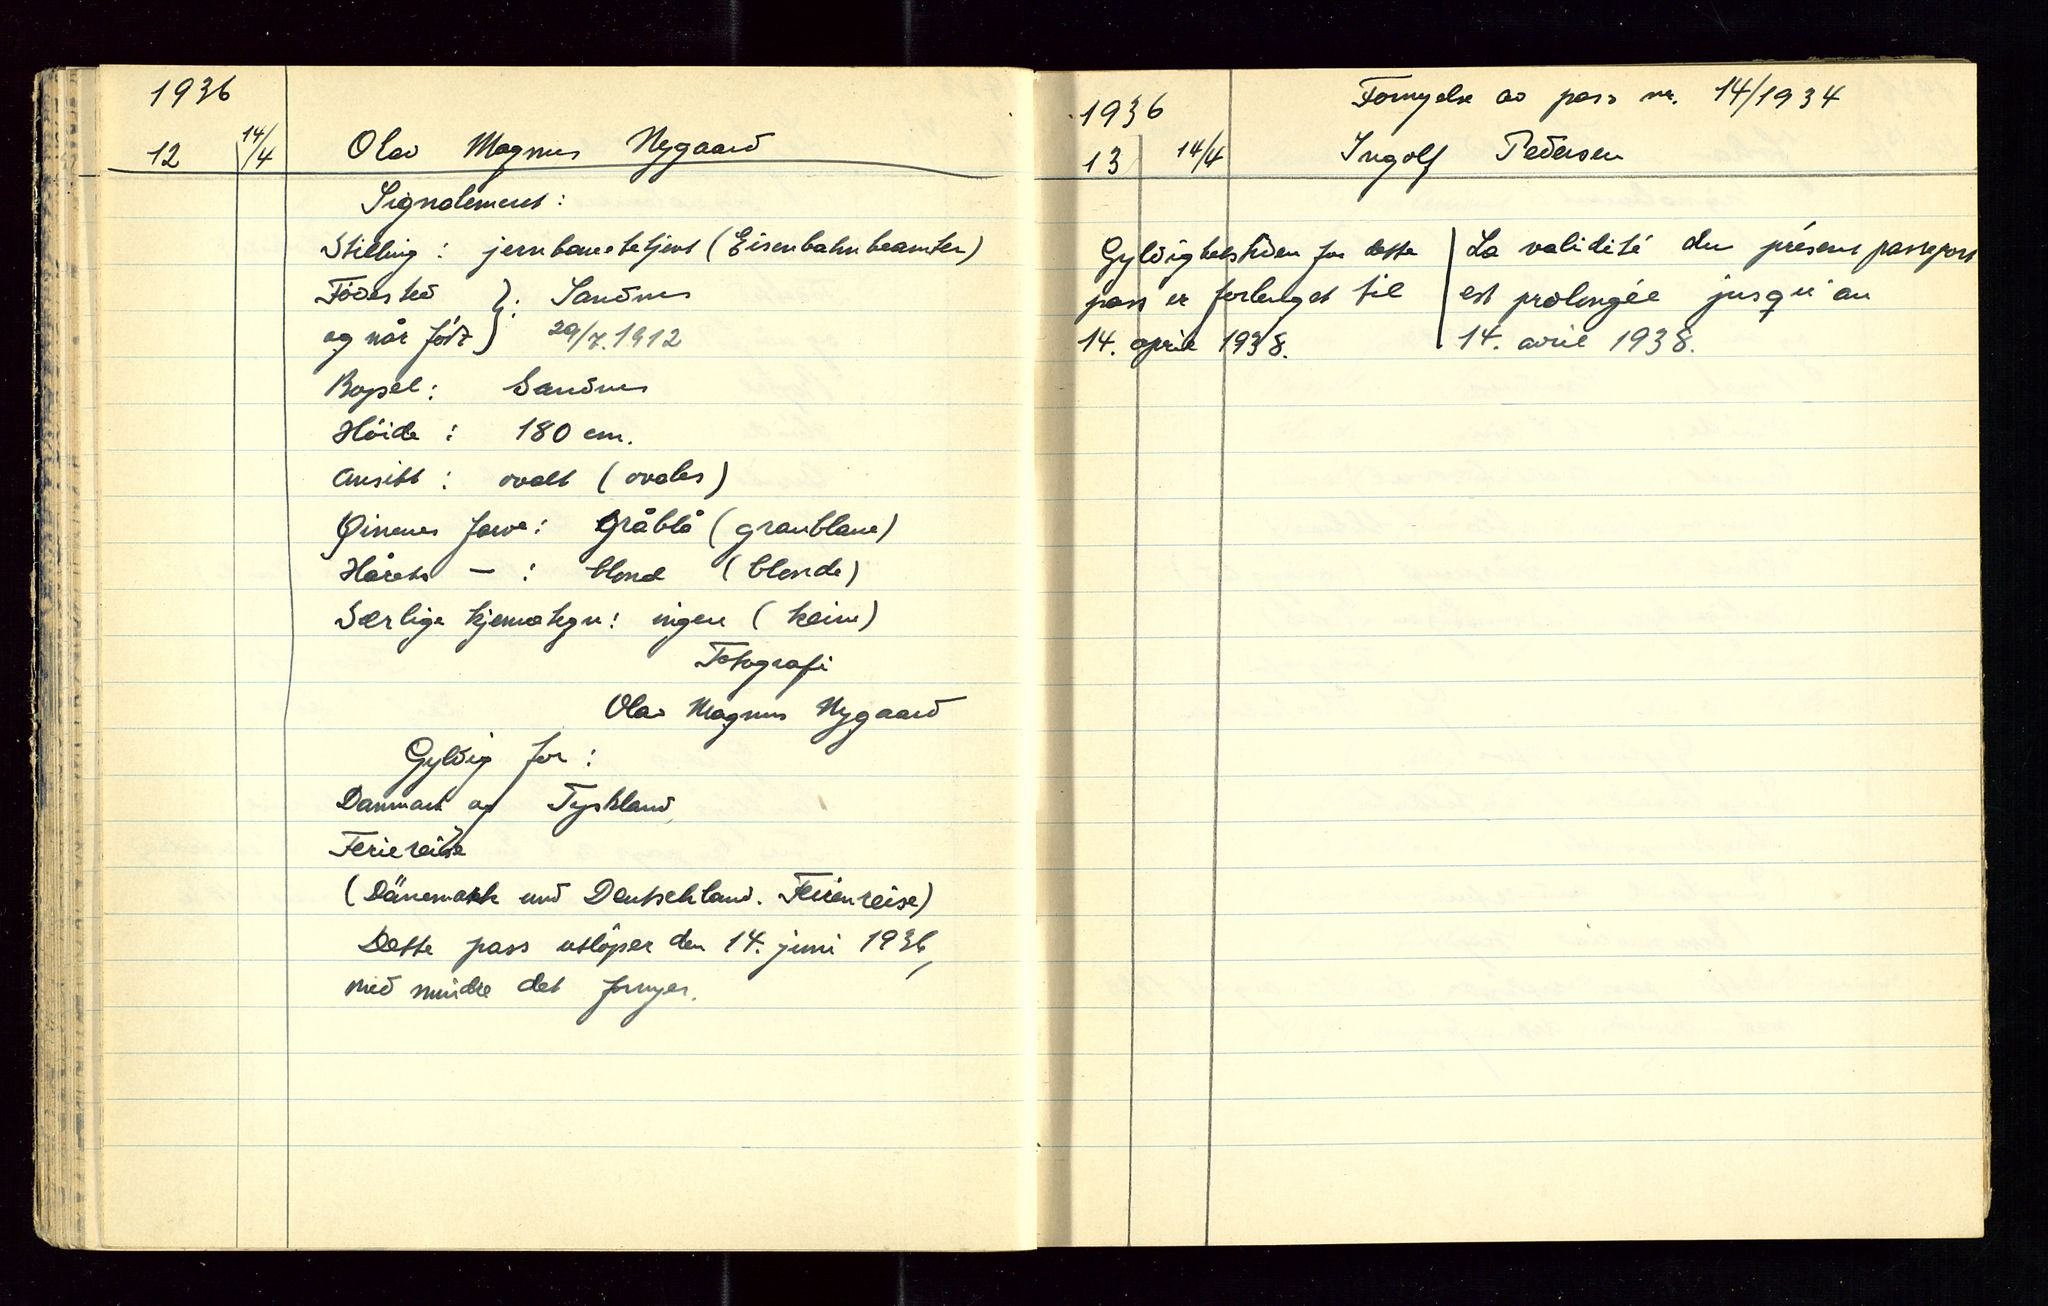 1936
12 14/4 Olav Magnus Nygaard
Signalement:
Stilling: jernbanebetjent (Eisenbahnbeamter)
Fødested
og når født }: Sandnes
29/7.1912
Bopæl: Sandnes
Høide: 180 cm.
Ansikt: ovalt (ovales)
Øinenes farve: Gråblå (graublaue)
Hårets — : blond (blonde)
Særlige kjennetegn: ingen (keine)
Fotografi
Olav Magnus Nygaard
Gyldig for:
Danmark og Tyskland,
Feriereise
(Dänemark und Deutschland. Ferienreise)
Dette pass utløper den 14. juni 1936,
med mindre det fornyes.
1936 Fornyelse av pass nr. 14/1934
13 14/4 Ingolf Pedersen
Gyldighetstiden for dette
pass er forlenget til
14. april 1938.
La validité du présent passeport
est prolongée jusqu'au
14. avril 1938.